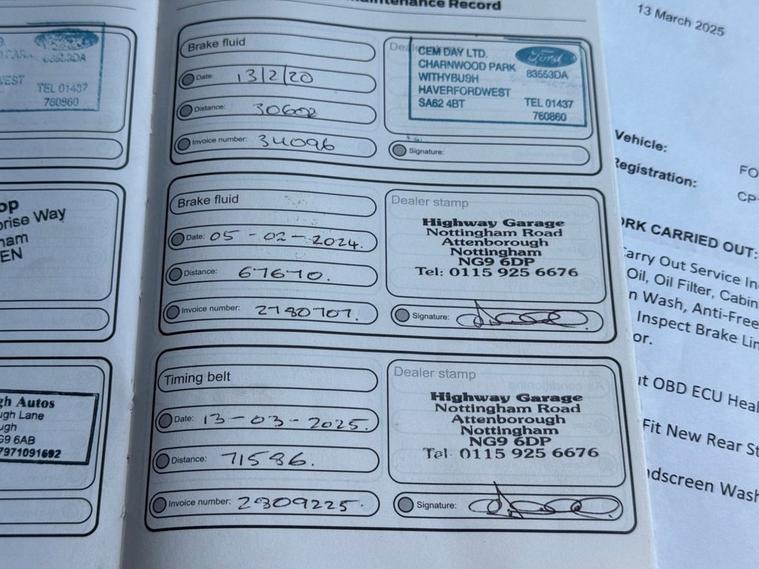 83553DA
TEL 01437
760860
op
prise Way
ham
EN
gh Autos
ugh Lane
ugh
G9 6AB
7971091692
Maintenance Record
Brake fluid
Date: 13/2/20
Distance:
Invoice number: 34096
CEM DAY LTD.
CHARNWOOD PARK
WITHYBUSH
HAVERFORDWEST
SA62 4BT
Ford
83553DA
TEL 01437
760860
Signature:
Brake fluid
Date: 05-02-2024.
Distance: 67670.
Invoice number: 2780707.
Dealer stamp
Highway Garage
Nottingham Road
Attenborough
Nottingham
NG9 6DP
Tel: 0115 925 6676
Signature:
Timing belt
Date: 13-03-2025.
Distance: 71586.
Invoice number: 2809225.
Dealer stamp
Highway Garage
Nottingham Road
Attenborough
Nottingham
NG9 6DP
Tel: 0115 925 6676
Signature:
13 March 2025
Vehicle: FO
Registration: CP
ORK CARRIED OUT:
Carry Out Service In
Oil, Oil Filter, Cabin
n Wash, Anti-Free
Inspect Brake Lin
or.
ut OBD ECU Heal
Fit New Rear St
ndscreen Wash